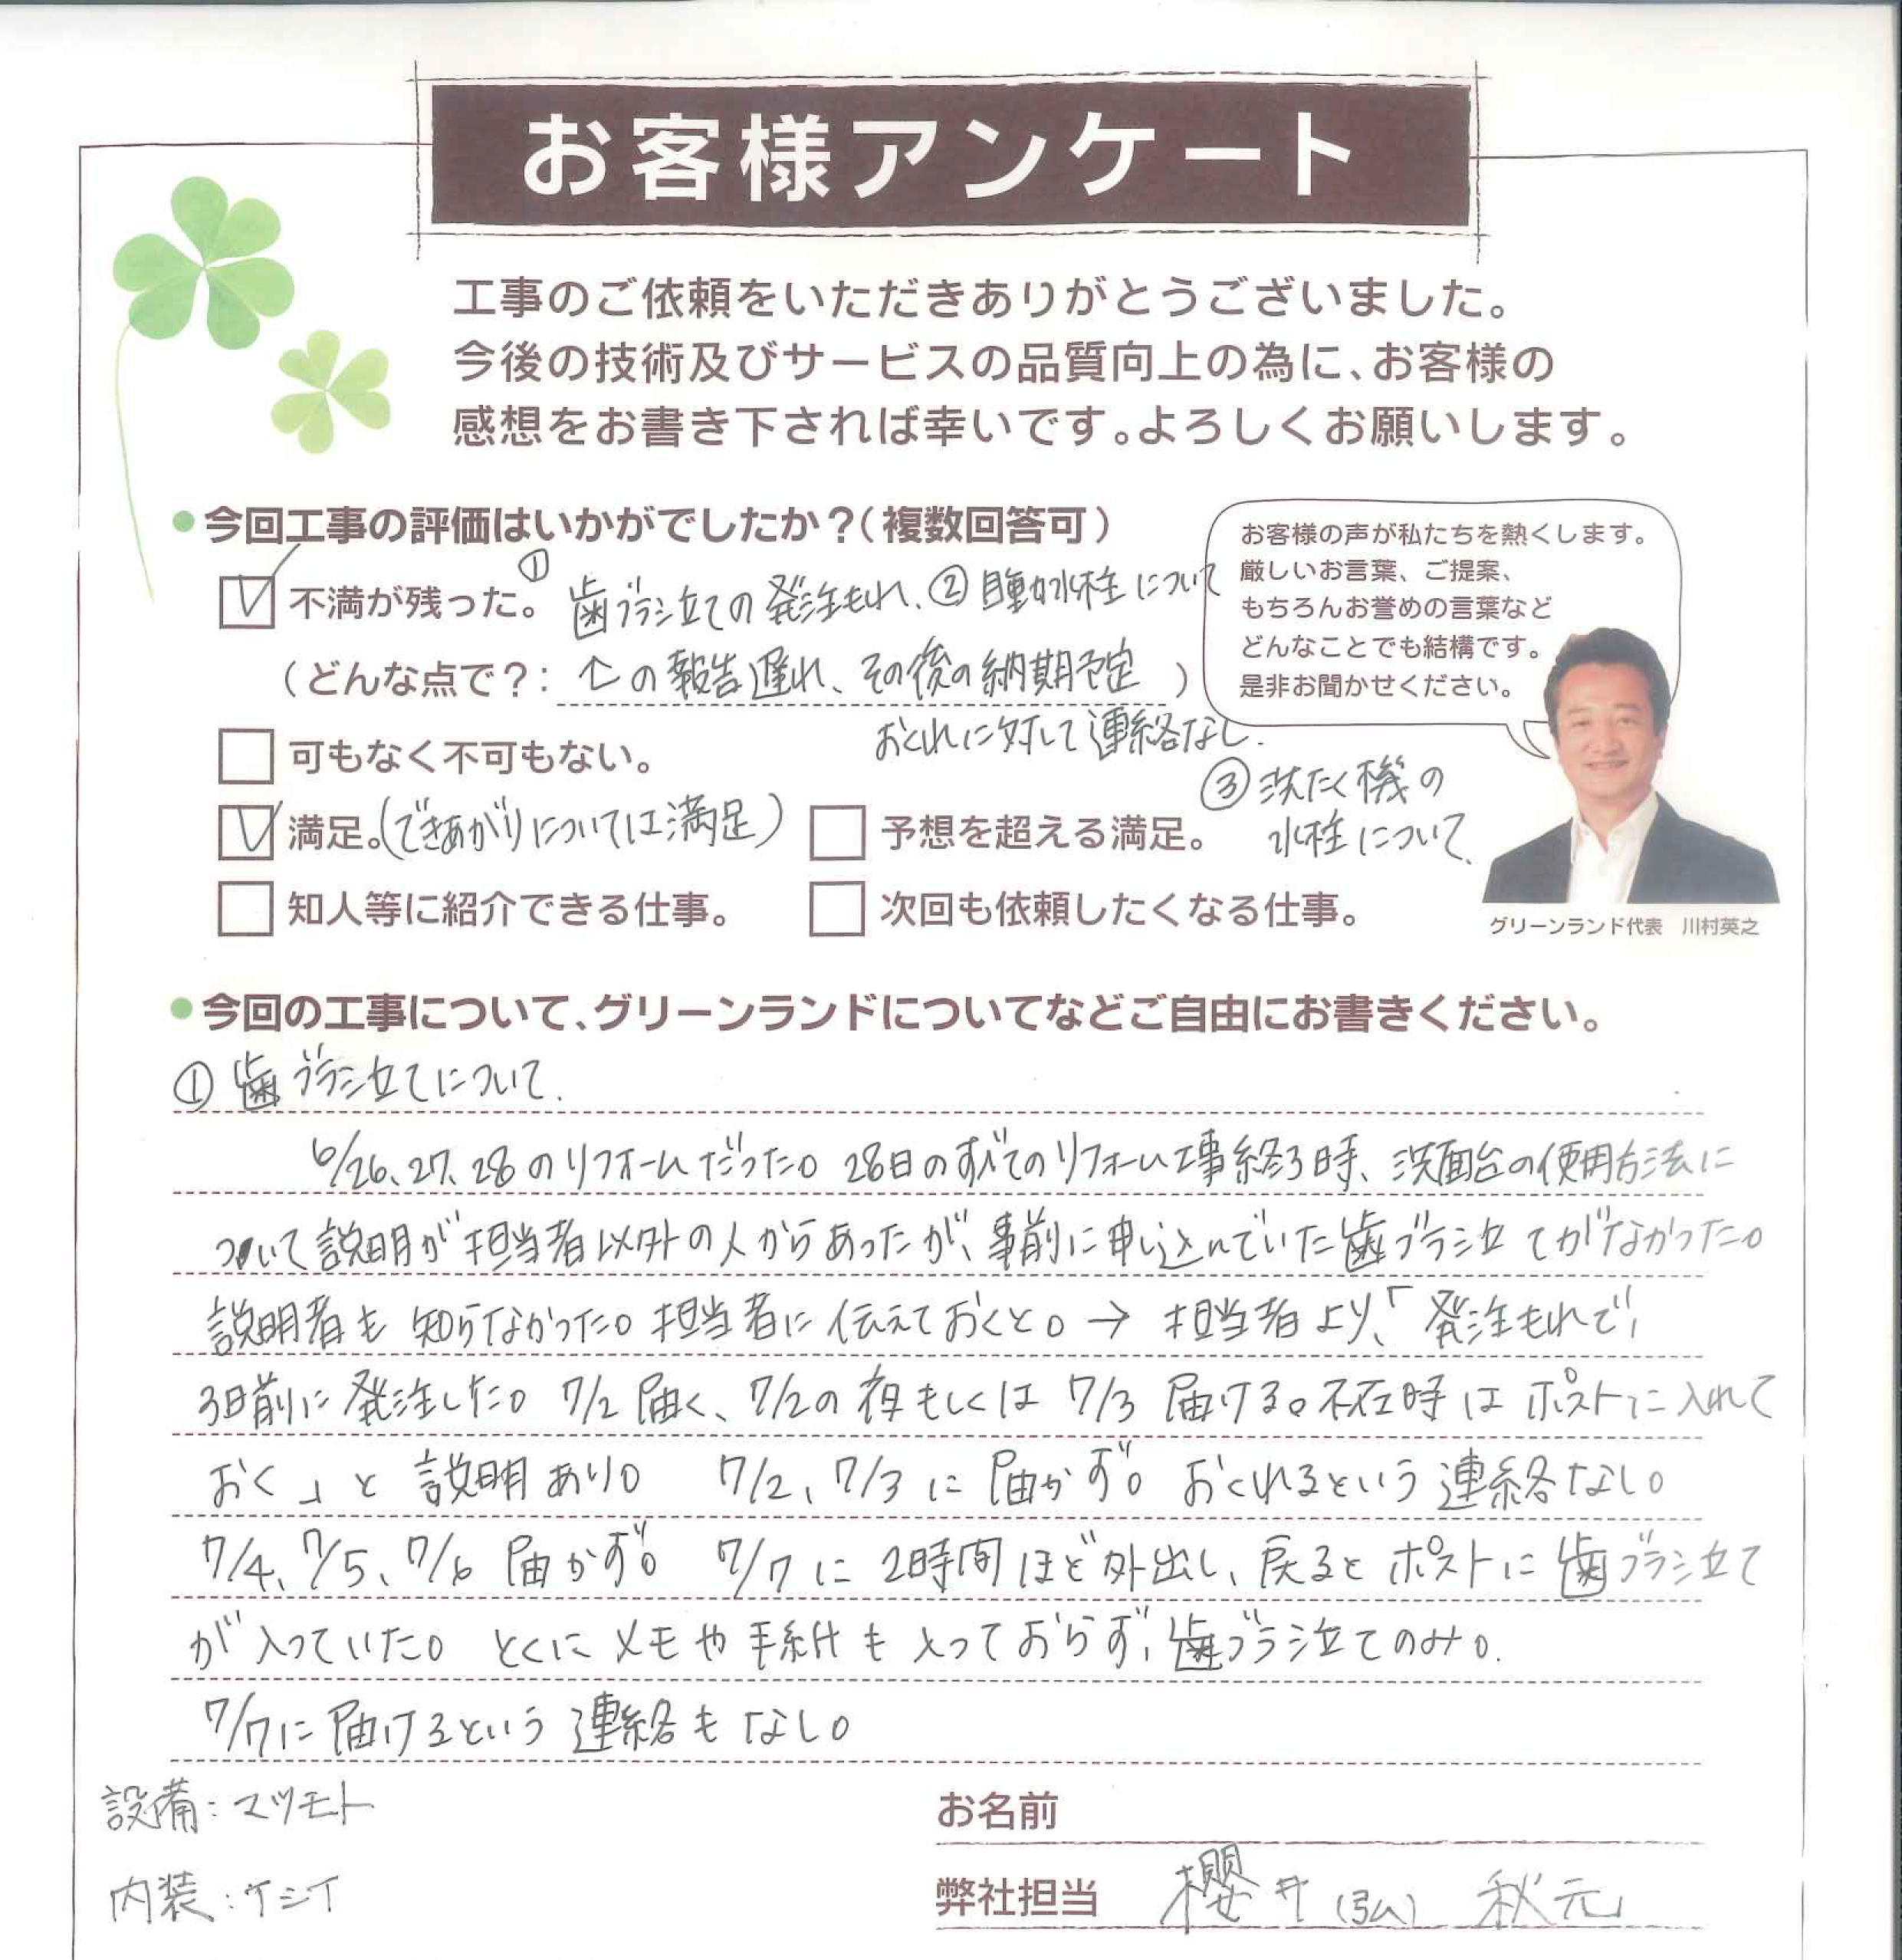 お客様アンケート
工事のご依頼をいただきありがとうございました。
今後の技術及びサービスの品質向上の為に、お客様の
感想をお書き下されば幸いです。よろしくお願いします。
●今回工事の評価はいかがでしたか？（複数回答可）
不満が残った。①歯ブラシ立ての発注もれ、②自動水栓について
（どんな点で？：↑の報告遅れ、その後の納期予定）
おくれに対して連絡なし.
可もなく不可もない。
③洗たく機の
水栓について.
満足。（できあがりについては満足）
予想を超える満足。
知人等に紹介できる仕事。
次回も依頼したくなる仕事。
お客様の声が私たちを熱くします。
厳しいお言葉、ご提案、
もちろんお誉めの言葉など
どんなことでも結構です。
是非お聞かせください。
グリーンランド代表　川村英之
●今回の工事について、グリーンランドについてなどご自由にお書きください。
①歯ブラシ立てについて.
6/26、27、28のリフォームだった。28日のすべてのリフォーム工事終了時、洗面台の使用方法に
ついて説明が担当者以外の人からあったが、事前に申し込んでいた歯ブラシ立てがなかった。
説明者も知らなかった。担当者に伝えておくと。→担当者より、「発注もれで、
3日前に発注した。7/2届く、7/2の夜もしくは7/3届ける。不在時はポストに入れて
おく」と説明あり。　7/2、7/3に届かず。おくれるという連絡なし。
7/4、7/5、7/6届かず。　7/7に2時間ほど外出し、戻るとポストに歯ブラシ立て
が入っていた。とくにメモや手紙も入っておらず、歯ブラシ立てのみ。
7/7に届けるという連絡もなし。
設備：マツモト
内装：ケシイ
お名前
弊社担当　櫻井（弘）　秋元